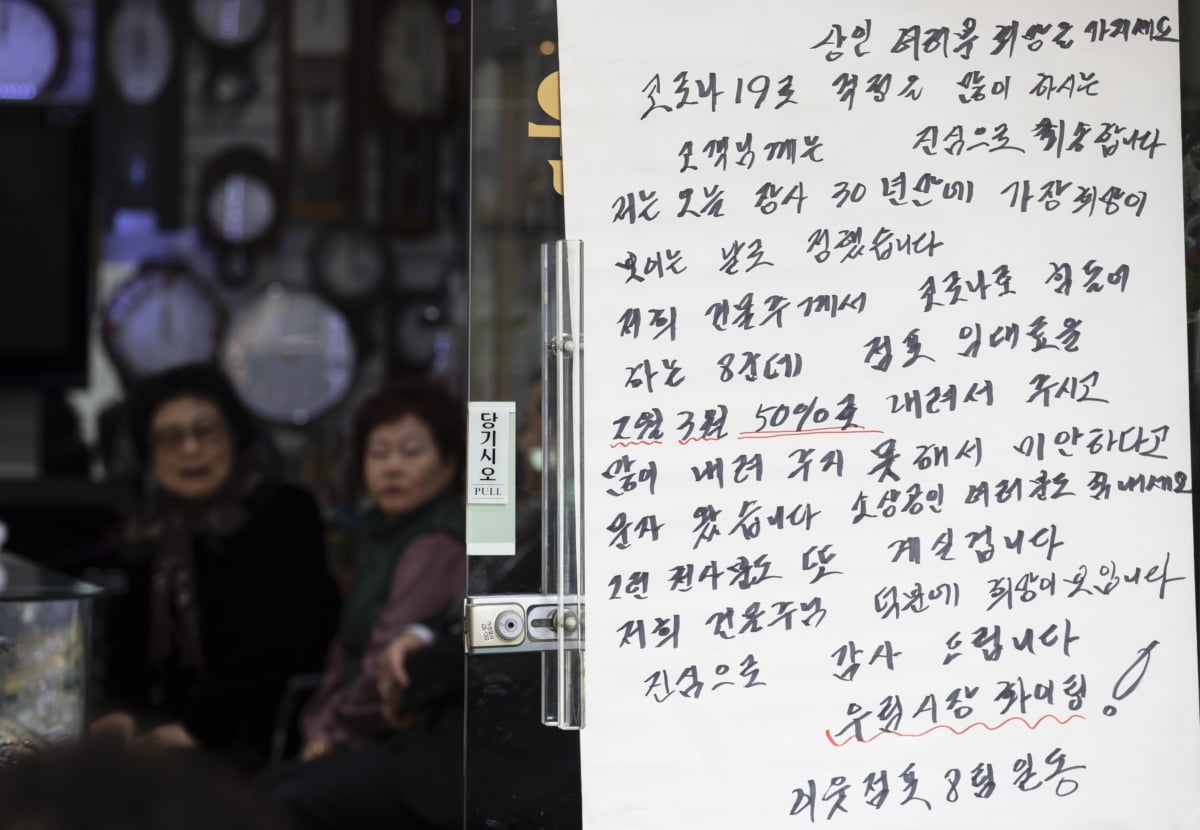 상인 여러분 희망은 가지세요
코로나19로 걱정을 많이 하시는
고객님께는 진심으로 죄송합니다
저는 오늘 장사 30년만에 가장희망이
있는 날로 정했습니다
저희 건물주께서 코로나로 힘들어
하는 8칸데 점포 임대료을
2월 3월 50%로 내려서 주시고
많이 내려 주지 못해서 미안하다고
문자 왔습니다 소상공인 여러분도 힘내세요
그런 천사분도 또 계실겁니다
저희 건물주님 덕분에 희망이 보입니다
진심으로 감사 드립니다
우림시장 화이팅!
이웃점포 8팀 일동
당기시오
PULL